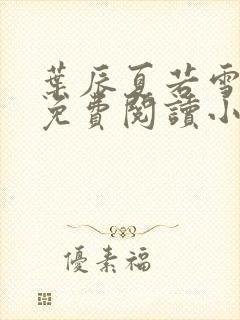 葉辰夏若雪
免費閱讀小
優素福